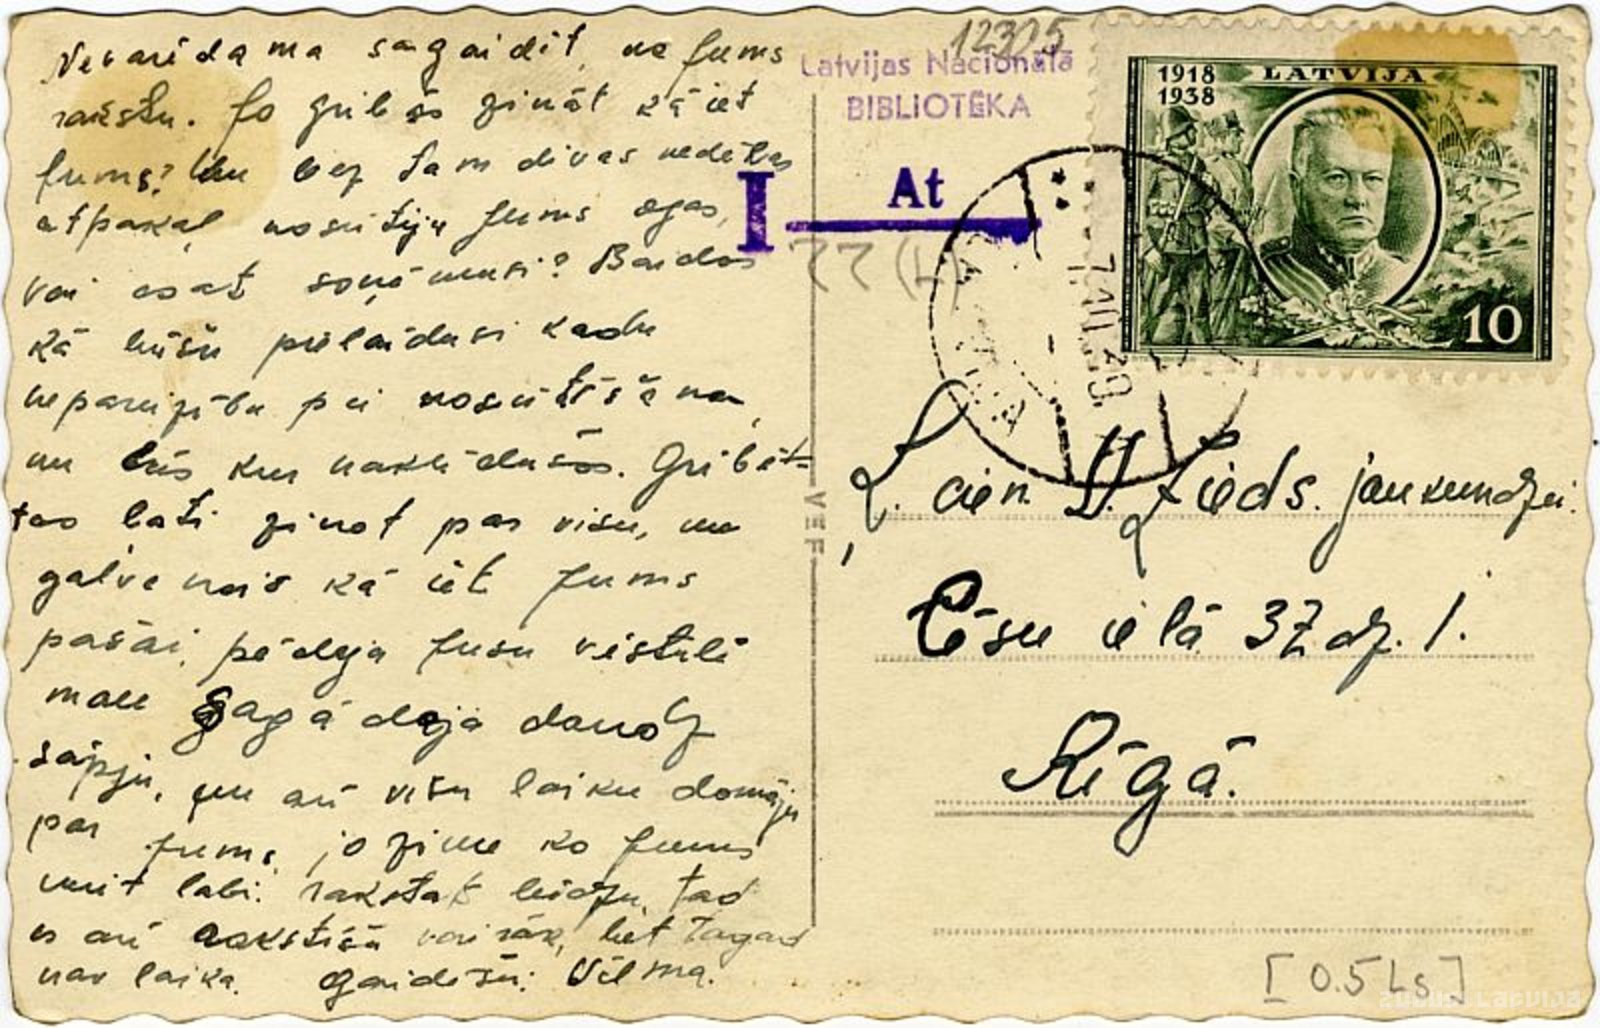 Nevarēdama sagaidīt, no Jums
rakstu. Jo gribās zināt kā iet
Jums? Un bez tam divas nedēļas
atpakaļ nosūtiju Jums ogas,
vai esat soņēmusi? Baidos
kā būšu pielaidusi kādu
nepareizību pie nosūtīšana,
un būs kur noklīdušas. Gribēt-
tos ļoti zinot par visu, un
galvenais kā iet Jums
pašai, pēdeja Jusu vēstulē
man sagādaja daudz
sāpju, un arī visu laiku domāju
par Jums, jo zinu ko Jums
mit labi. rakstat lūdzu, tad
es arī rakstīšu vairāk, bet tagad
nav laika. Gaidīšu: Vilma.
12305
Latvijas Nacionālā
BIBLIOTĒKA
I At
22 (4)
1918 LATVIJA
1938
10
VEF
L. cien. Lieds. jaukundzei.
Cēsu ielā 37 dz. 1.
Rīgā.
[0.5 Ls]
zudusi Latvija